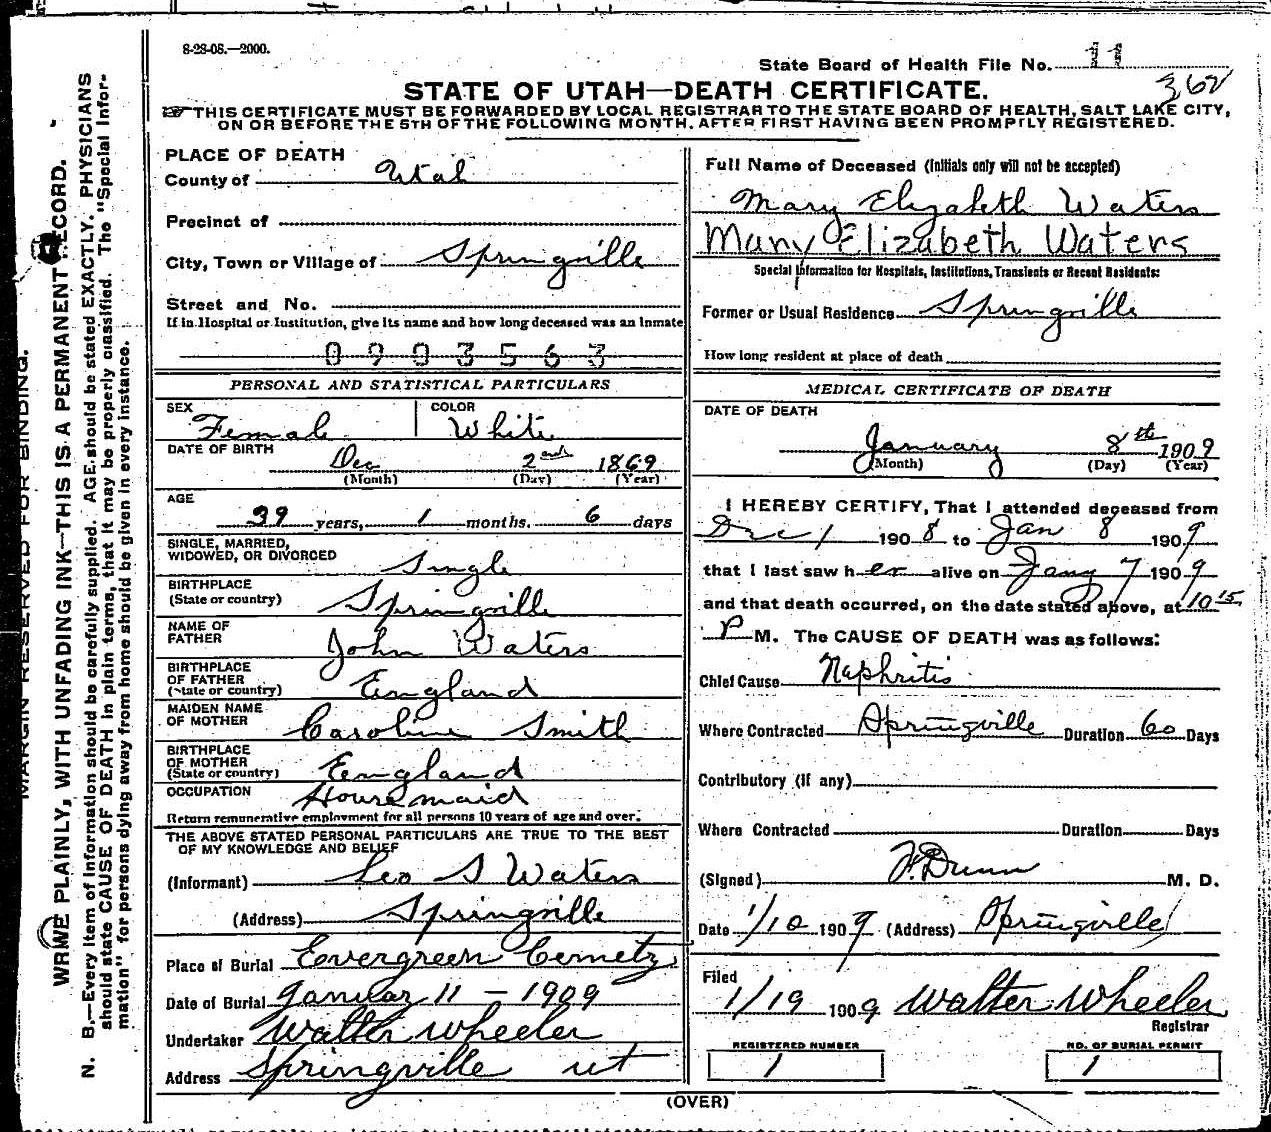 8-28-08.—2000.
State Board of Health File No. 11
362
STATE OF UTAH—DEATH CERTIFICATE.
THIS CERTIFICATE MUST BE FORWARDED BY LOCAL REGISTRAR TO THE STATE BOARD OF HEALTH, SALT LAKE CITY,
ON OR BEFORE THE 5TH OF THE FOLLOWING MONTH, AFTER FIRST HAVING BEEN PROMPTLY REGISTERED.
MARGIN RESERVED FOR BINDING.
WRITE PLAINLY, WITH UNFADING INK—THIS IS A PERMANENT RECORD.
N. B.—Every item of information should be carefully supplied. AGE should be stated EXACTLY. PHYSICIANS
should state CAUSE OF DEATH in plain terms, that it may be properly classified. The "Special Infor-
mation" for persons dying away from home should be given in every instance.
PLACE OF DEATH
County of Utah
Precinct of
City, Town or Village of Springville
Street and No.
If in Hospital or Institution, give its name and how long deceased was an inmate
0903563
PERSONAL AND STATISTICAL PARTICULARS
SEX COLOR
Female White
DATE OF BIRTH
Dec 2nd 1869
(Month) (Day) (Year)
AGE
39 years, 1 months. 6 days
SINGLE, MARRIED,
WIDOWED, OR DIVORCED Single
BIRTHPLACE
(State or country) Springville
NAME OF
FATHER John Waters
BIRTHPLACE
OF FATHER
(State or country) England
MAIDEN NAME
OF MOTHER Caroline Smith
BIRTHPLACE
OF MOTHER
(State or country) England
OCCUPATION House maid
Return remunerative employment for all persons 10 years of age and over.
THE ABOVE STATED PERSONAL PARTICULARS ARE TRUE TO THE BEST
OF MY KNOWLEDGE AND BELIEF
(Informant) Leo S Waters
(Address) Springville
Place of Burial Evergreen Cemetry
Date of Burial January 11 - 1909
Undertaker Walter Wheeler
Address Springville ut
Full Name of Deceased (Initials only will not be accepted)
Mary Elizabeth Waters
Mary Elizabeth Waters
Special Information for Hospitals, Institutions, Transients or Recent Residents:
Former or Usual Residence Springville
How long resident at place of death
MEDICAL CERTIFICATE OF DEATH
DATE OF DEATH
January 8th 1909
(Month) (Day) (Year)
I HEREBY CERTIFY, That I attended deceased from
Dec 1 1908 to Jan 8 1909
that I last saw her alive on Jany 7 1909
and that death occurred, on the date stated above, at 10 15
P M. The CAUSE OF DEATH was as follows:
Chief Cause Nephritis
Where Contracted Springville Duration 60 Days
Contributory (if any)
Where Contracted Duration Days
(Signed) F. Dunn M. D.
Date 1/10 1909 (Address) Springville
Filed
1/19 1909 Walter Wheeler
Registrar
REGISTERED NUMBER NO. OF BURIAL PERMIT
1 1
(OVER)